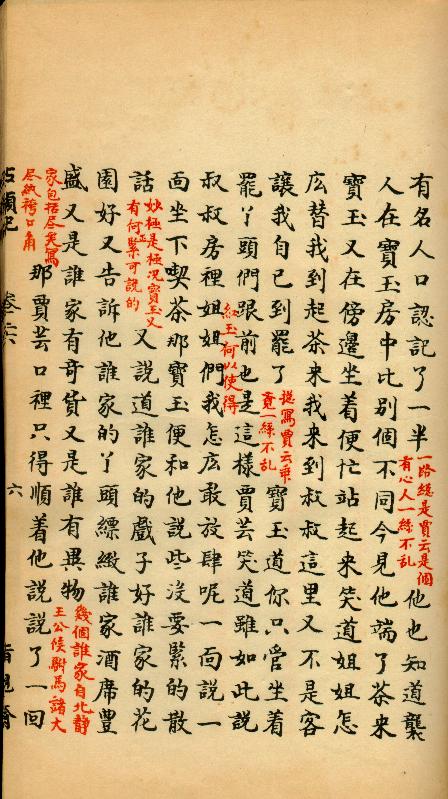 有名人口認記了一半一路總是賈云是個有心人一絲不乱他也知道襲
人在寶玉房中比別個不同今見他端了茶来
寶玉又在傍邊坐着便忙站起来笑道姐姐怎
庅替我到起茶来我来到叔叔這里又不是客
讓我自己到罷了寫賈云乖一絲不乱寶玉道你只管坐着
罷丫頭們跟前也是這樣賈芸笑道雖如此說
紅玉何以使得
叔叔房裡姐姐們我怎庅敢放肆呢一面說一
面坐下喫茶那寶玉便和他說些没要緊的散
話妙極是極况寶玉又有何正緊可說的又說道誰家的戲子好誰家的花
園好又告訴他誰家的丫頭縹緻誰家酒席豐
盛又是誰家有奇貨又是誰有異物幾個誰家自北静王公侯駙馬諸大
家包括尽矣寫尽紈袴口角那賈芸口裡只得順着他說說了一回
石頭記 卷二六 六 脂硯齋